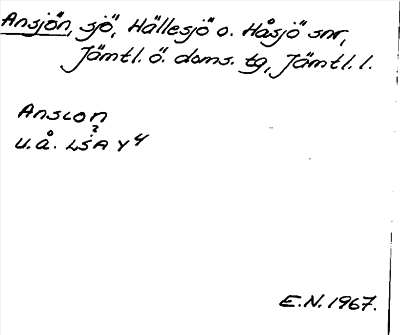 Ansjön, sjö, Hällesjö o. Håsjö snr,
Jämtl. ö. doms. tg, Jämtl. l.
Anscon
?
u.å. LSA Y4
E.N. 1967.